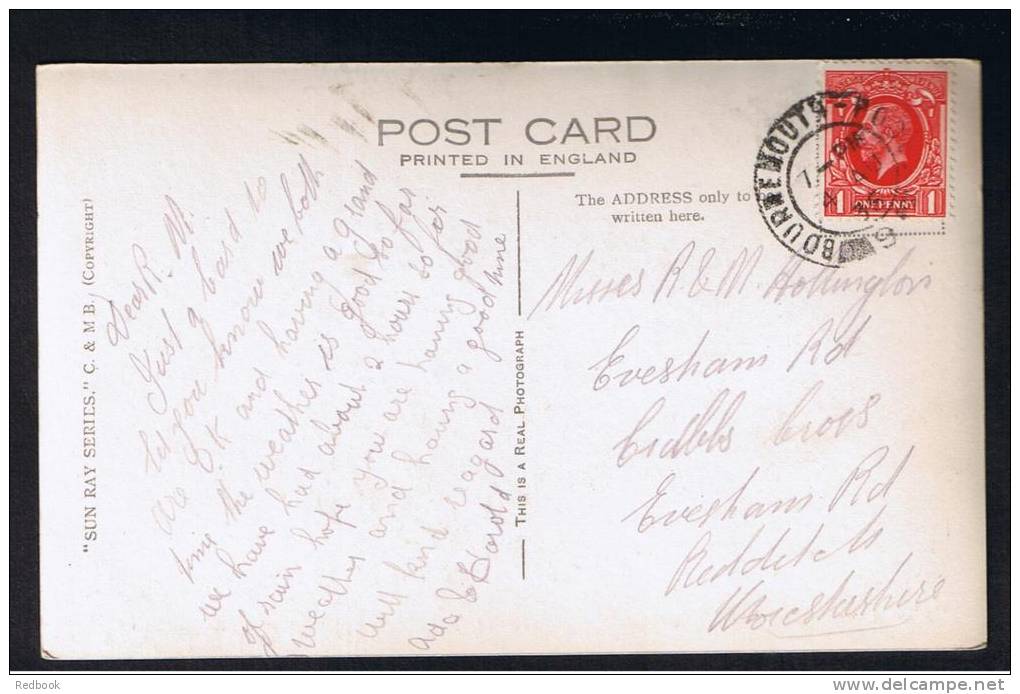 POST CARD
PRINTED IN ENGLAND
The ADDRESS only to
written here.
"SUN RAY SERIES." C. & M B. (COPYRIGHT)
THIS IS A REAL PHOTOGRAPH
BOURNEMOUTH - POO
7 - PM
ONE PENNY
1 1
Dear R. M.
Just a card to
let you know we both
are O.K and having a grand
time the weather is good so far
we have had about 2 hours so far
of rain hope you are having good
weather and having a good time
will kind reagard
Ada & Harold
Misses R & M. Hollington
Evesham Rd
Cross
Evesham Rd
Redditch
Worcestershire
Redbook
delcampe.net